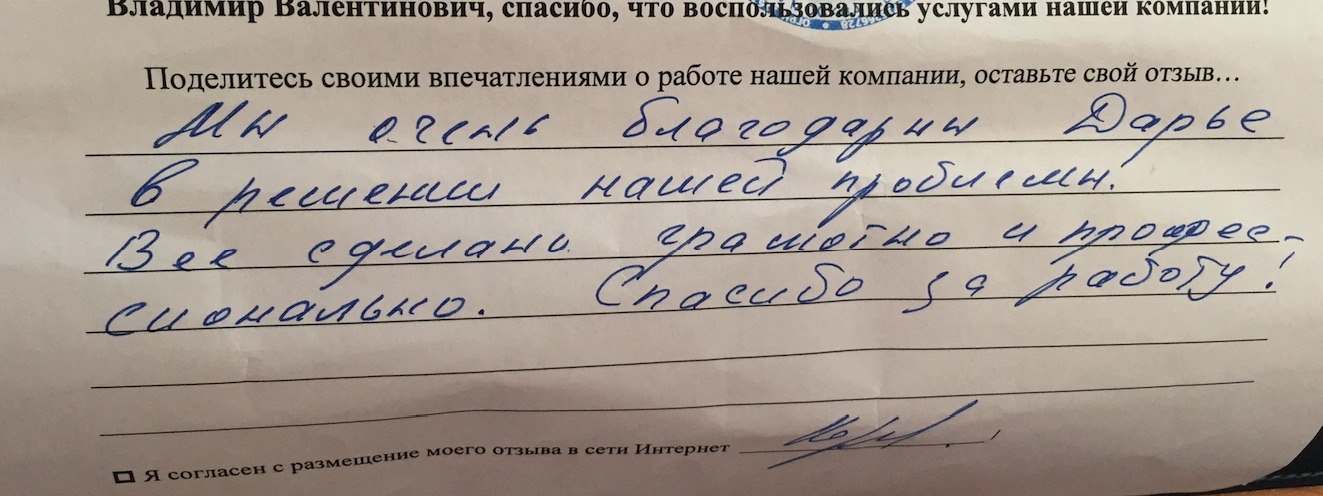 Владимир Валентинович, спасибо, что воспользовались услугами нашей компании!
Поделитесь своими впечатлениями о работе нашей компании, оставьте свой отзыв…
Мы очень благодарны Дарье
в решении нашей проблемы.
Все сделано грамотно и профес-
сионально. Спасибо за работу!
Я согласен с размещение моего отзыва в сети Интернет